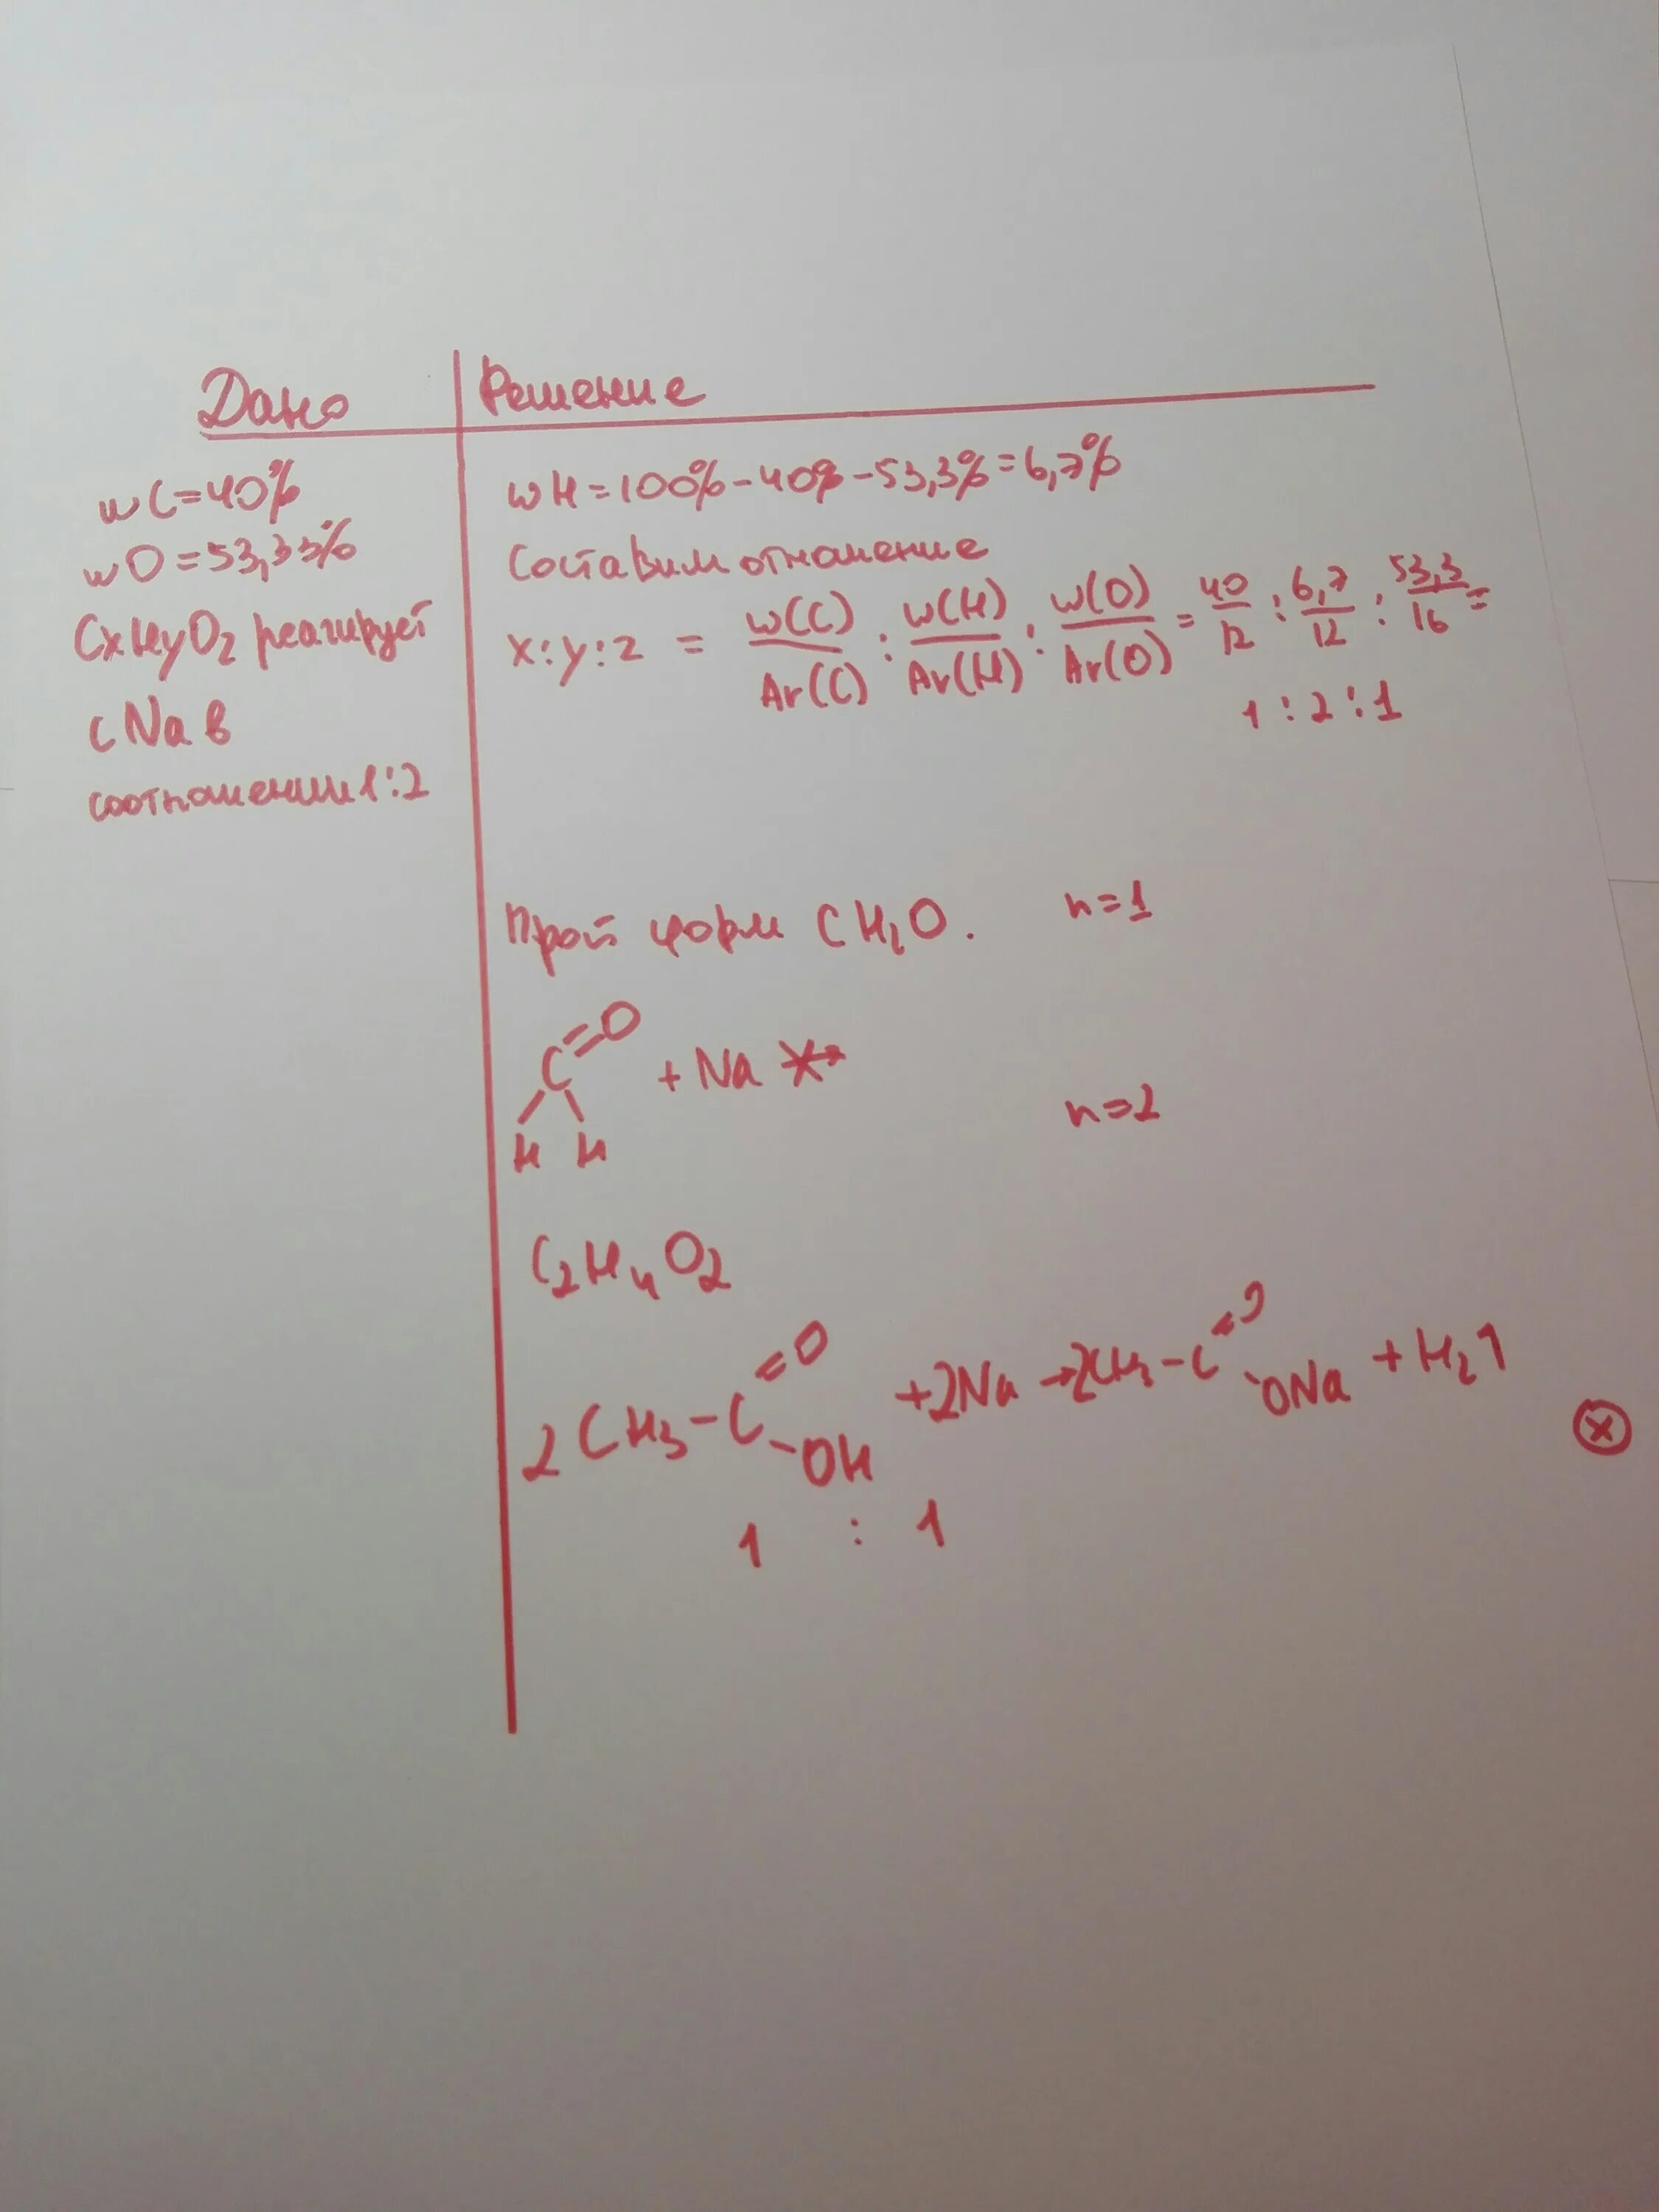 Дано
Решение
wC=40%
wO=53,33%
CxHyOz реагирует
с Na в
соотношении 1:2
wH=100%-40%-53,3%=6,7%
Составим отношение
x:y:z = w(C)/Ar(C) : w(H)/Ar(H) : w(O)/Ar(O) = 40/12 : 6,7/12 : 53,3/16 =
1:2:1
Прой форм CH₂O. n=1
C=O
H H
+ Na
n=2
C₂H₄O₂
2CH₃-C=O-OH +2Na → 2CH₃-C=O-ONa + H₂↑
1 : 1